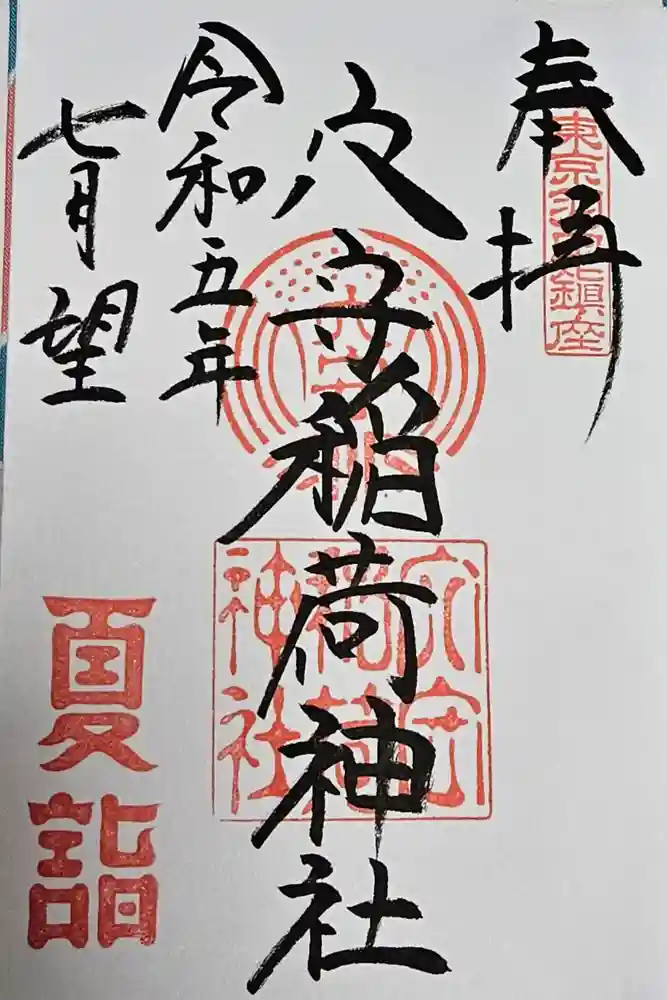 奉拝
東京羽田鎮座
穴守稲荷神社
穴守
稲荷
神社
令和五年
七月望
夏詣